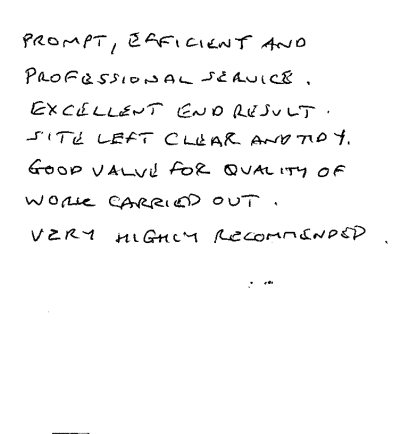 PROMPT, EFFICIENT AND
PROFESSIONAL SERVICE.
EXCELLENT END RESULT.
SITE LEFT CLEAR AND TIDY.
GOOD VALUE FOR QUALITY OF
WORK CARRIED OUT.
VERY HIGHLY RECOMMENDED.